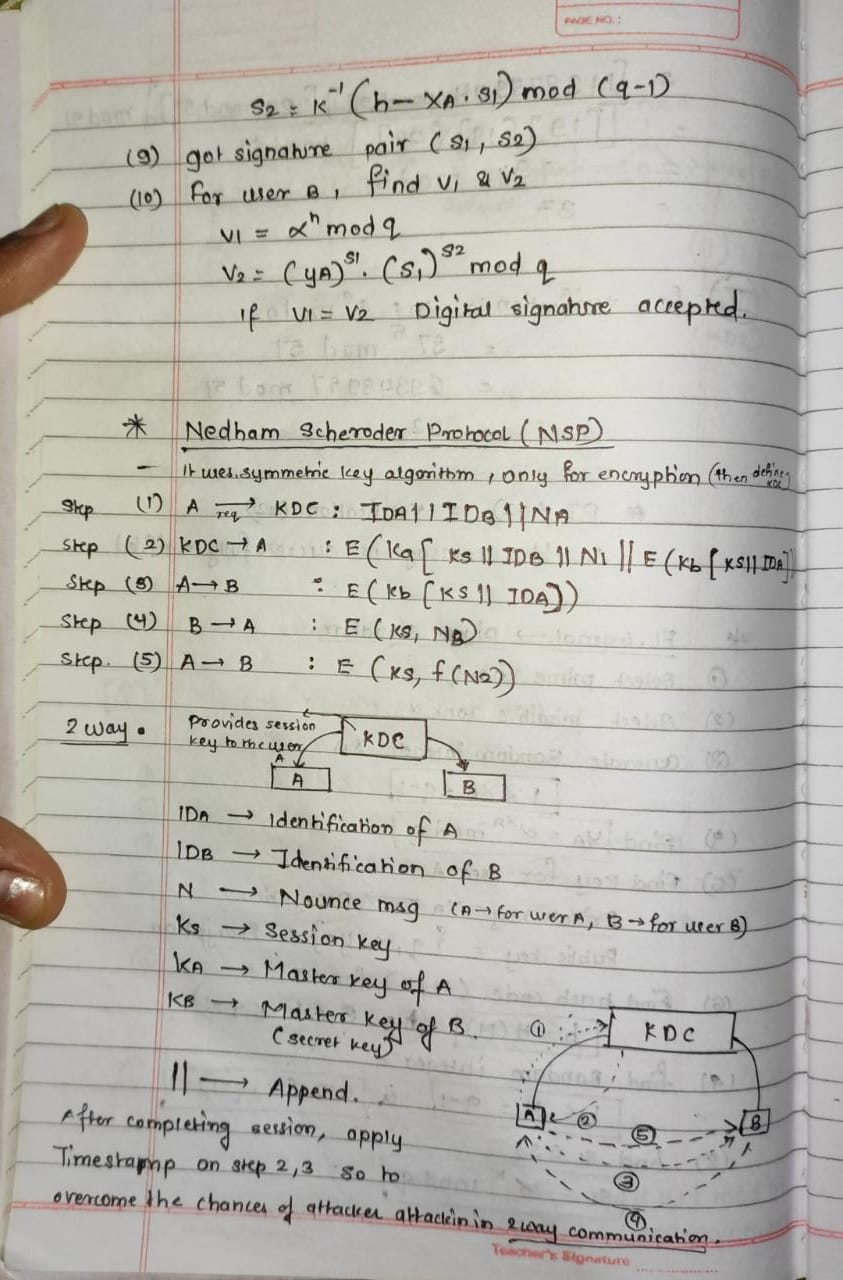 PAGE NO.:
S2 = K⁻¹ (h - XA . S1) mod (q-1)
(9) got signature pair (S1, S2)
(10) For user B, find V1 & V2
V1 = αʰ mod q
V2 = (yA)^S1 . (S1)^S2 mod q
If V1 = V2 Digital signature accepted.
* Nedham Scheroder Protocol (NSP)
- It uses symmetric key algorithm, only for encryption (then define KDC)
Step (1) A →req KDC : IDA || IDB || NA
Step (2) KDC → A : E(Ka[ Ks || IDB || N1 || E(Kb[KS || IDA])
Step (3) A → B : E(Kb [KS || IDA])
Step (4) B → A : E (KS, NB)
Step. (5) A → B : E (KS, f(N2))
2 way. Provides session
key to the user
A
KDC
A
B
IDA → Identification of A
IDB → Identification of B
N → Nounce msg (A → for user A, B → for user B)
Ks → Session key
KA → Master key of A
KB → Master key of B.
(secret key)
|| → Append.
① KDC
A ② ⑤ B
③
④
After completing session, apply
Timestapmp on step 2,3 so to
overcome the chances of attacker attackin in 2way communication.
Teacher's Signature